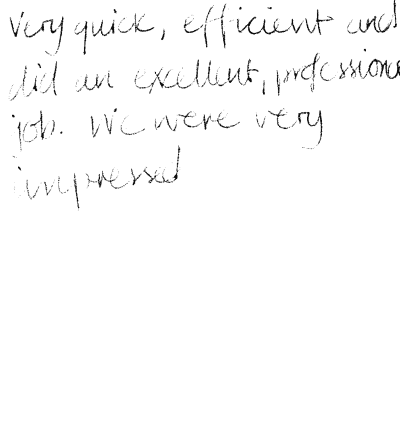 very quick, efficient and
did an excellent, professiona
job. We were very
impressed